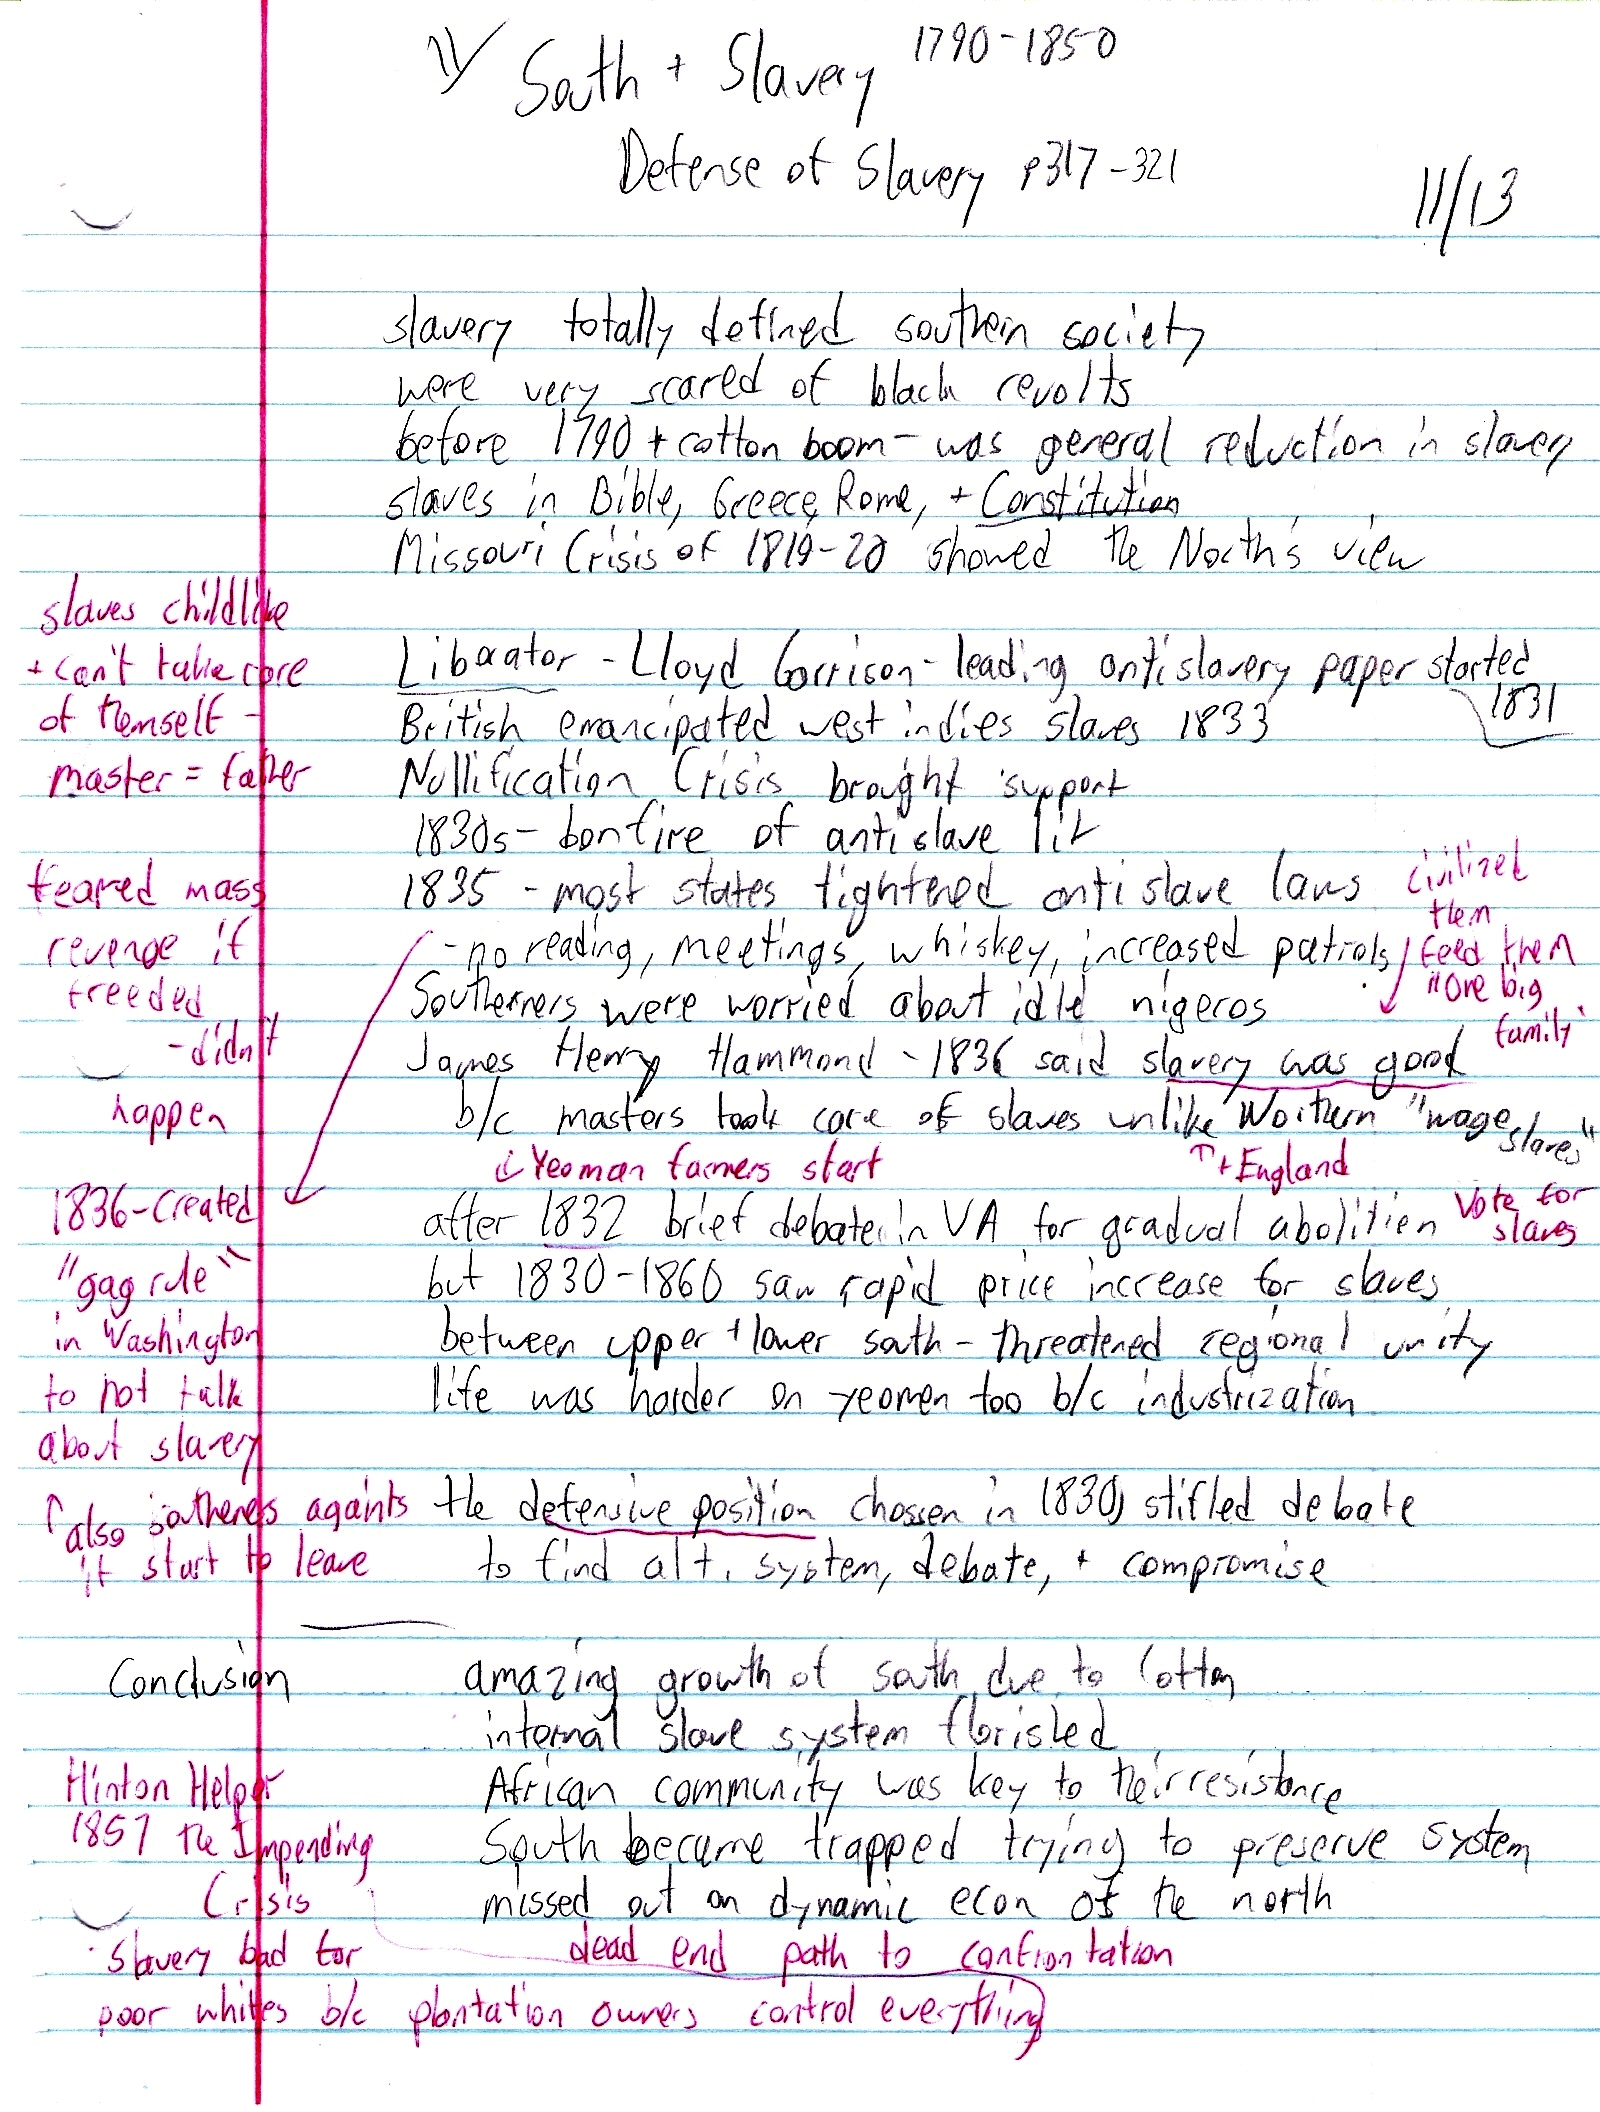 11/ South + Slavery 1790-1850
Defense of Slavery p317-321
11/13
slavery totally defined southern society
were very scared of black revolts
before 1790 + cotton boom - was general reduction in slavery
slaves in Bible, Greece, Rome, + Constitution
Missouri Crisis of 1819-20 showed the North's view
slaves childlike
+ can't take care
of themself -
master = father
Liborator - Lloyd Garrison - leading antislavery paper started
1831
British emancipated west indies slaves 1833
Nullification Crisis brought support
1830s - bonfire of antislave lit
feared mass
revenge if
freeded
- didn't
happen
1835 - most states tightened antislave laws
- no reading, meetings, whiskey, increased patrols
civilized
them
feed them
"one big
family"
Southerners were worried about idle nigeros
James Henry Hammond - 1836 said slavery was good
b/c masters took care of slaves unlike Northern "wage slaves"
↓ Yeoman farmers start
↑ + England
vote for
slaves
1836 - created
"gag rule"
in Washington
to not talk
about slavery
↑ also southerners againts
it start to leave
after 1832 brief debate in VA for gradual abolition
but 1830-1860 saw rapid price increase for slaves
between upper + lower south - threatened regional unity
life was harder on yeomen too b/c industrization
the defensive position chossen in 1830s stifled debate
to find alt. system, debate, + compromise
Conclusion
amazing growth of south due to Cotton
internal slave system florished
African community was key to their resistance
South became trapped trying to preserve system
missed out on dynamic econ of the north
dead end path to confrontation
Hinton Helper
1857 the Impending
Crisis
slavery bad for
poor whites b/c plantation owners control everything